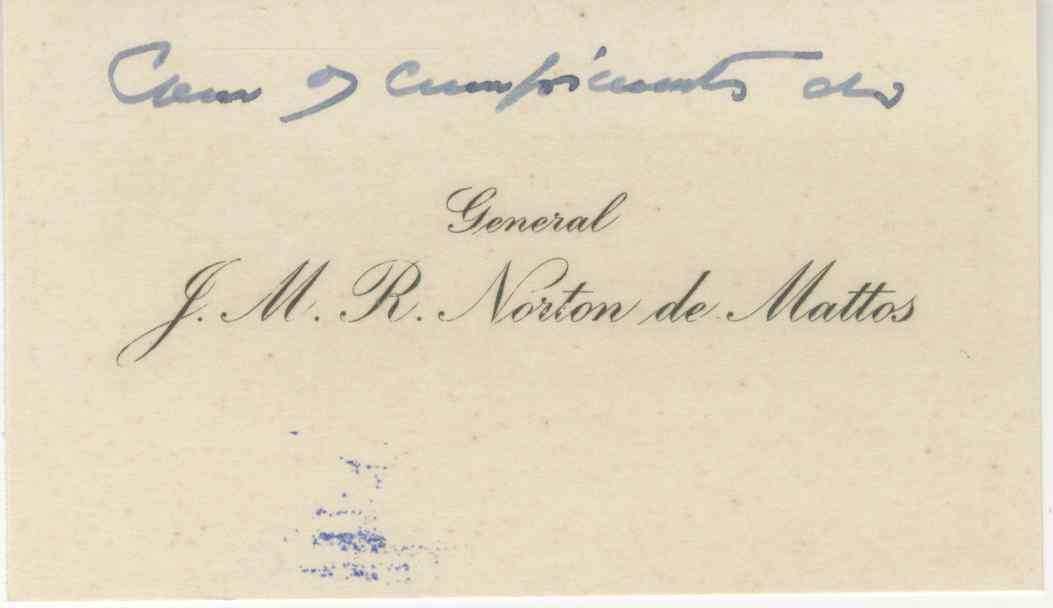 Com os cumprimentos do
General
J. M. R. Norton de Mattos